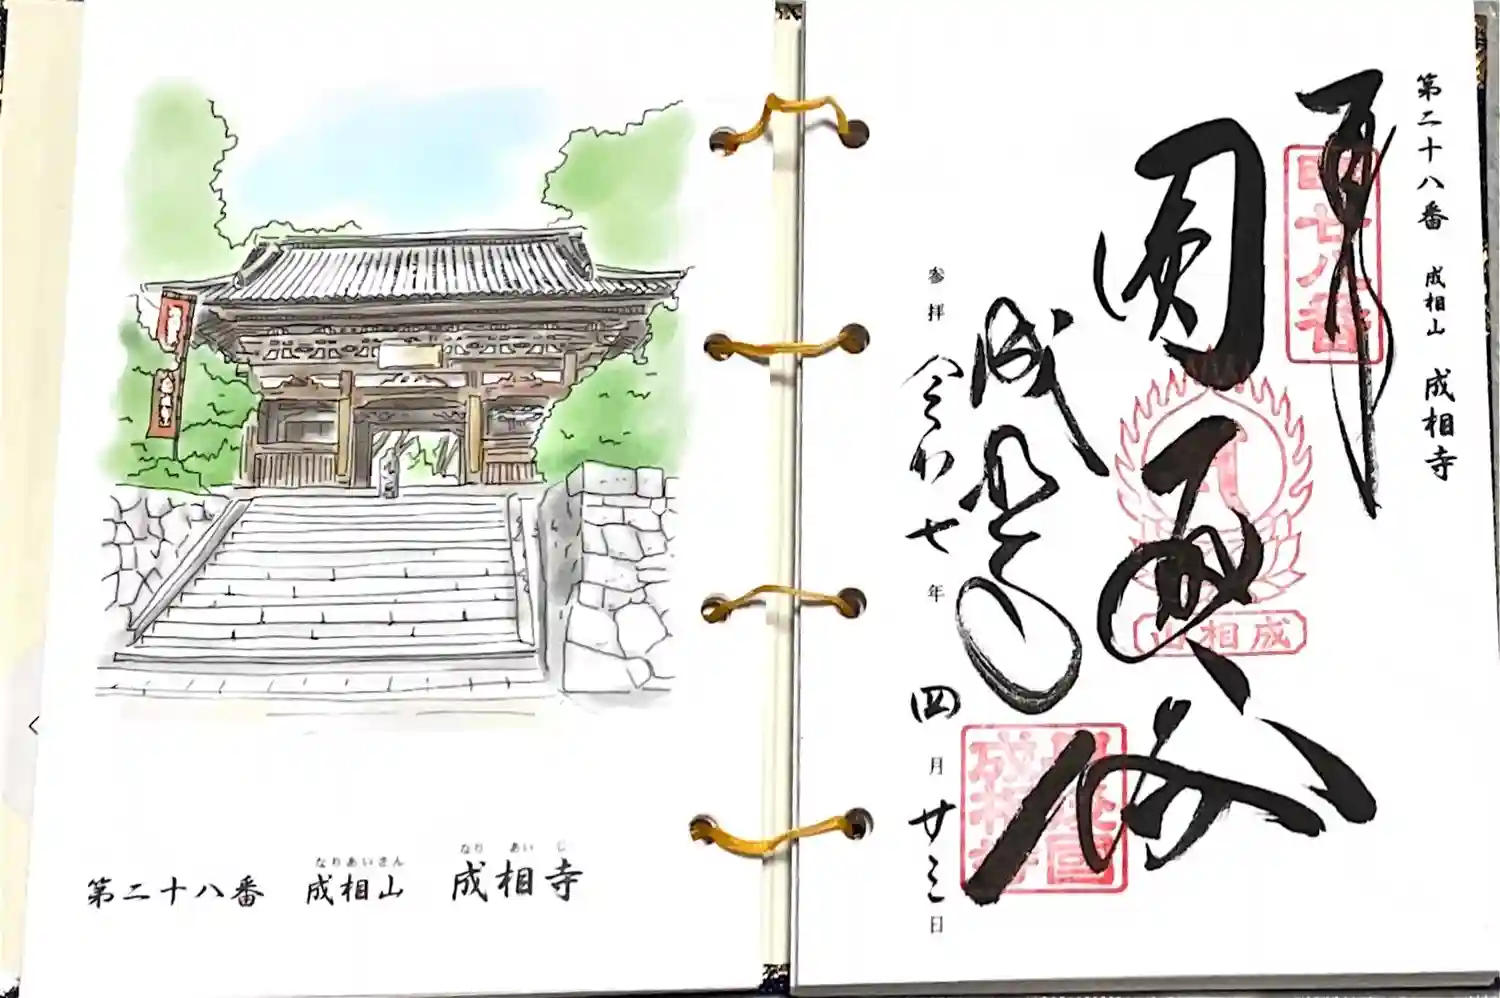 なりあいさん なりあいじ
第二十八番 成相山 成相寺
第二十八番 成相山 成相寺
廿八番
圓
成相山
成相寺
参拝 令和七年四月廿三日
成相寺